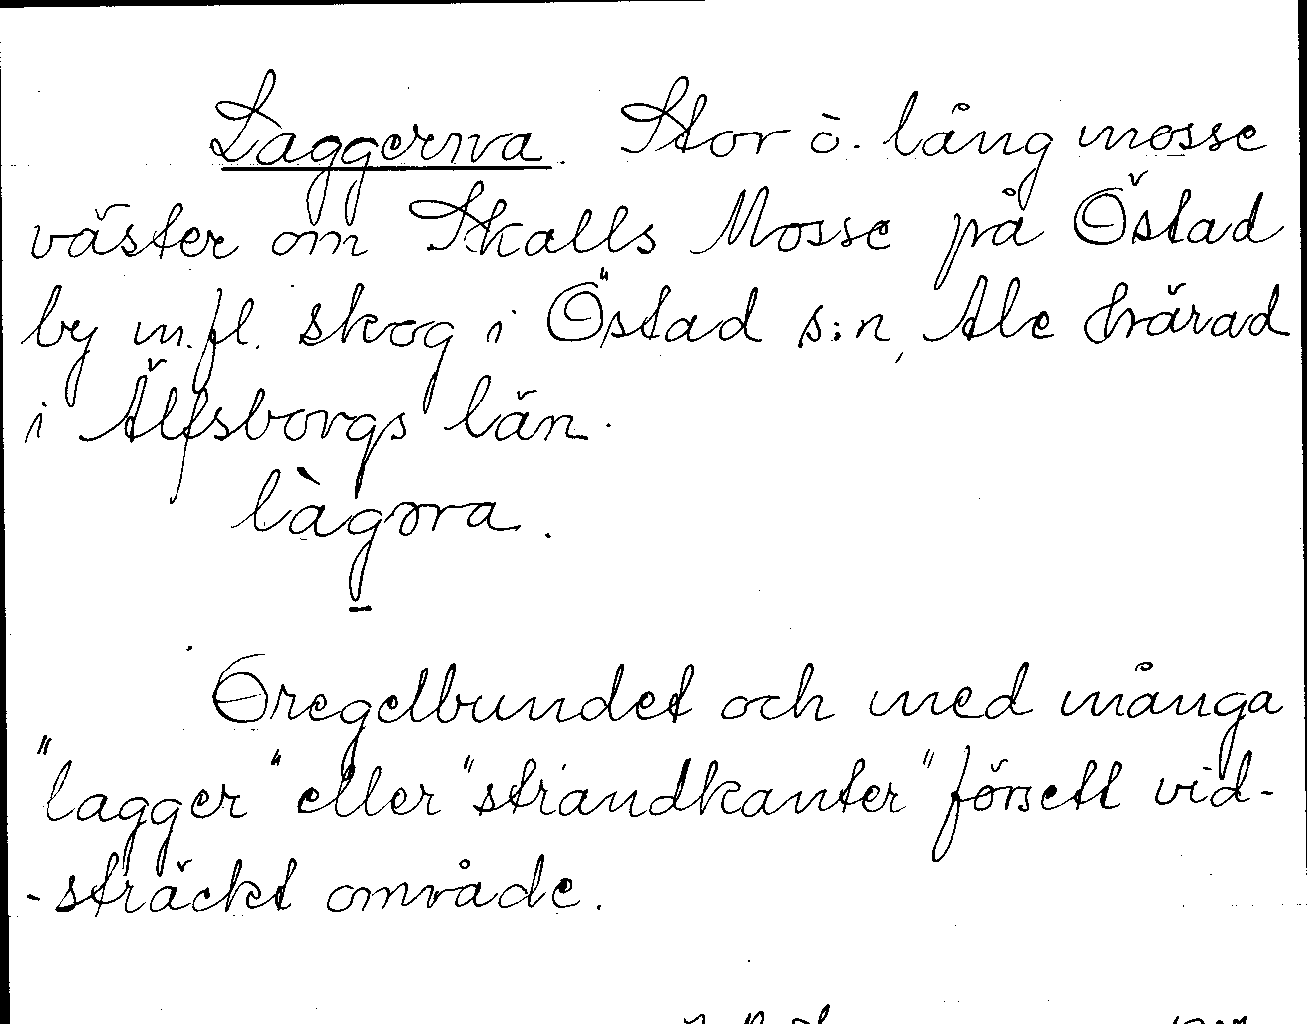 Laggerna. Stor o. lång mosse
väster om Skalls Mosse på Östad
by m.fl. skog i Östad s:n, Ale härad
i Älfsborgs län.
làgǝra.
Oregelbundet och med många
"lagger" eller "strandkanter" försett vid-
-sträckt område.